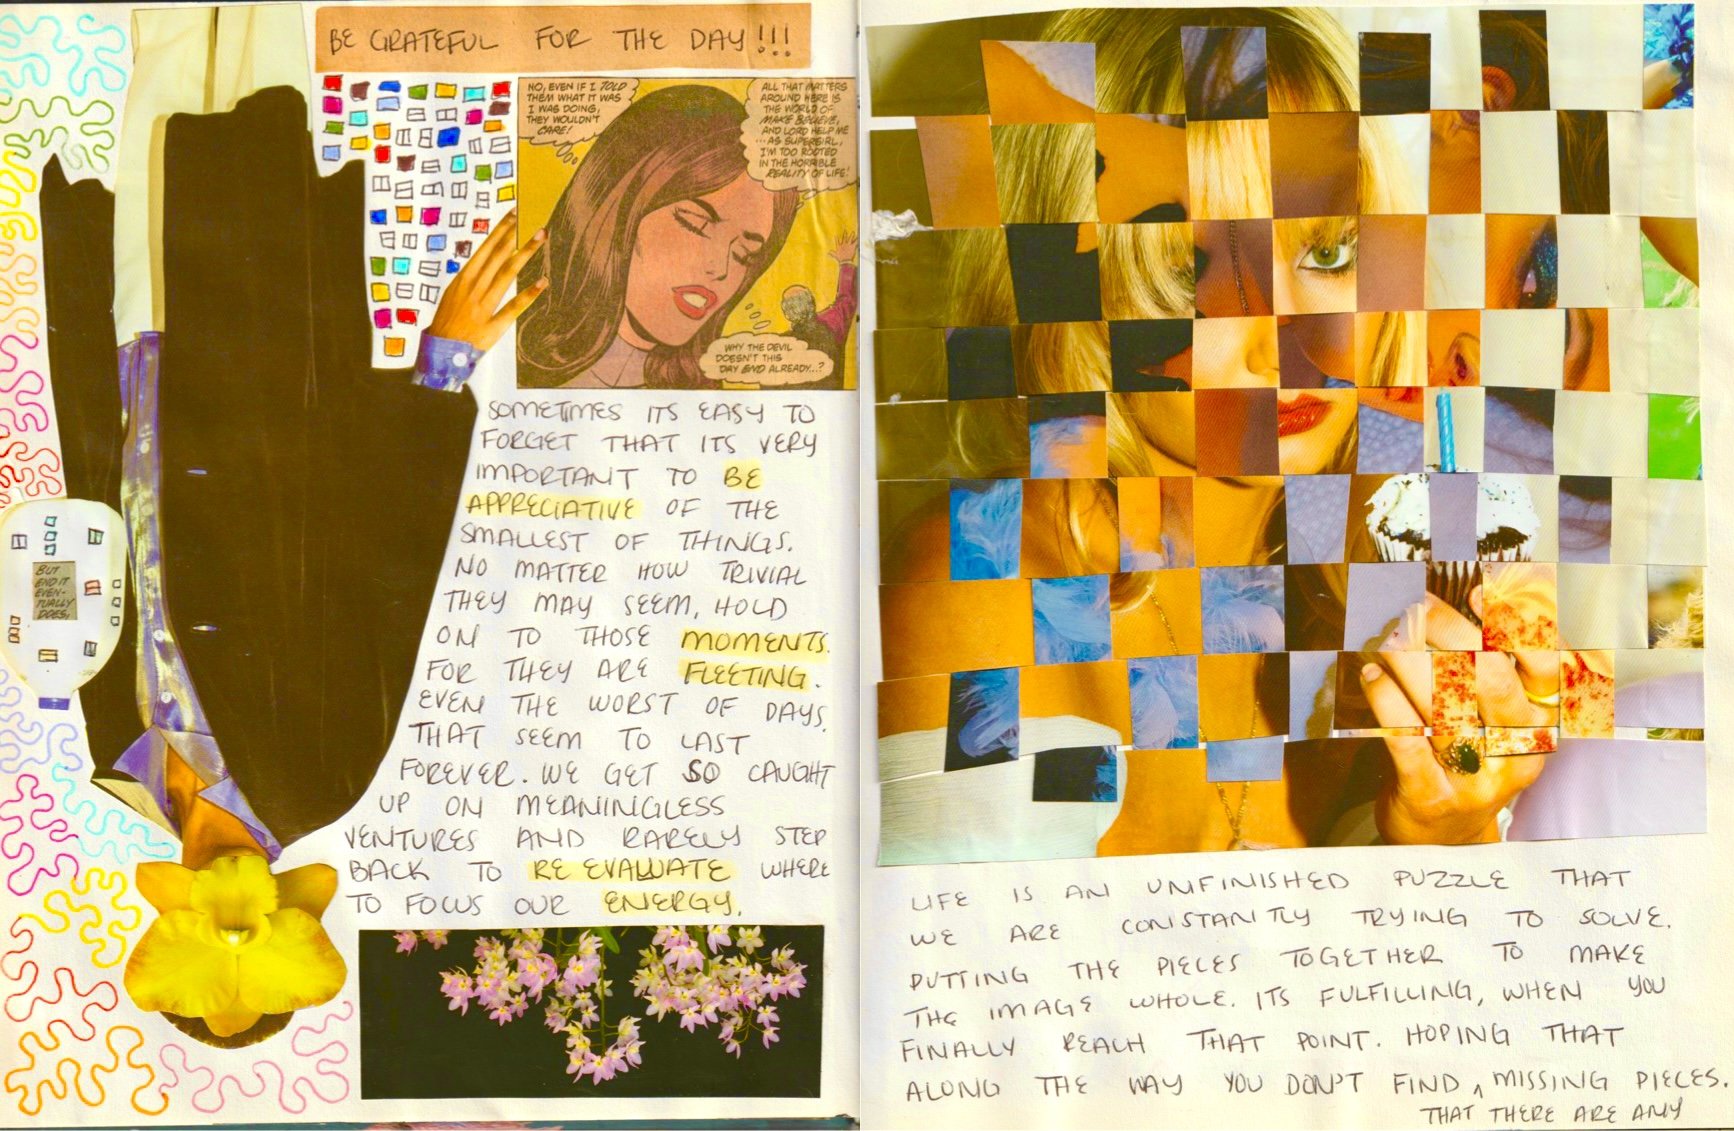 BE GRATEFUL FOR THE DAY!!!
NO, EVEN IF I TOLD
THEM WHAT IT WAS
I WAS DOING,
THEY WOULDN'T
CARE!
ALL THAT MATTERS
AROUND HERE IS
THE WORLD OF
MAKE BELIEVE,
AND LORD HELP ME
...AS SUPERGIRL,
I'M TOO ROOTED
IN THE HORRIBLE
REALITY OF LIFE!
WHY THE DEVIL
DOESN'T THIS
DAY END ALREADY...?
BUT
END IT
EVEN-
TUALLY
DOES,
SOMETIMES ITS EASY TO
FORGET THAT ITS VERY
IMPORTANT TO BE
APPRECIATIVE OF THE
SMALLEST OF THINGS.
NO MATTER HOW TRIVIAL
THEY MAY SEEM, HOLD
ON TO THOSE MOMENTS.
FOR THEY ARE FLEETING.
EVEN THE WORST OF DAYS,
THAT SEEM TO LAST
FOREVER. WE GET SO CAUGHT
UP ON MEANINGLESS
VENTURES AND RARELY STEP
BACK TO RE EVALUATE WHERE
TO FOCUS OUR ENERGY.
LIFE IS AN UNFINISHED PUZZLE THAT
WE ARE CONSTANTLY TRYING TO SOLVE.
PUTTING THE PIECES TOGETHER TO MAKE
THE IMAGE WHOLE. ITS FULFILLING, WHEN YOU
FINALLY REACH THAT POINT. HOPING THAT
ALONG THE WAY YOU DON'T FIND ^ MISSING PIECES.
THAT THERE ARE ANY